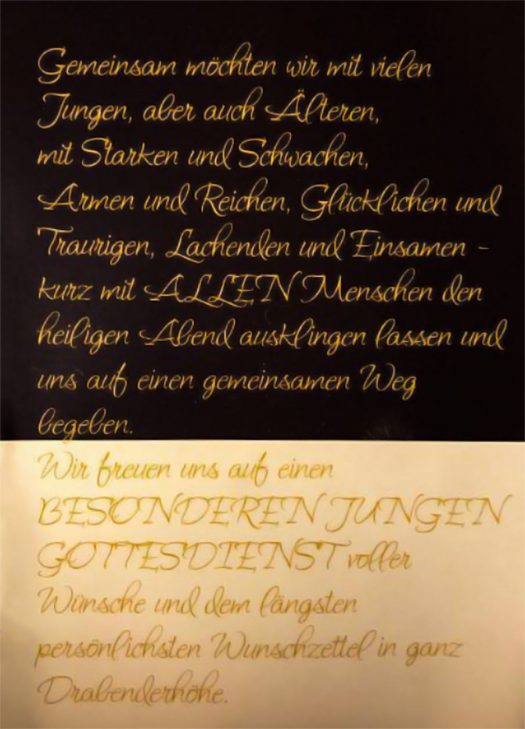 Gemeinsam möchten wir mit vielen
Jungen, aber auch Älteren,
mit Starken und Schwachen,
Armen und Reichen, Glücklichen und
Traurigen, Lachenden und Einsamen -
kurz mit ALLEN Menschen den
heiligen Abend ausklingen lassen und
uns auf einen gemeinsamen Weg
begeben.
Wir freuen uns auf einen
BESONDEREN JUNGEN
GOTTESDIENST voller
Wünsche und dem längsten
persönlichsten Wunschzettel in ganz
Drabenderhöhe.